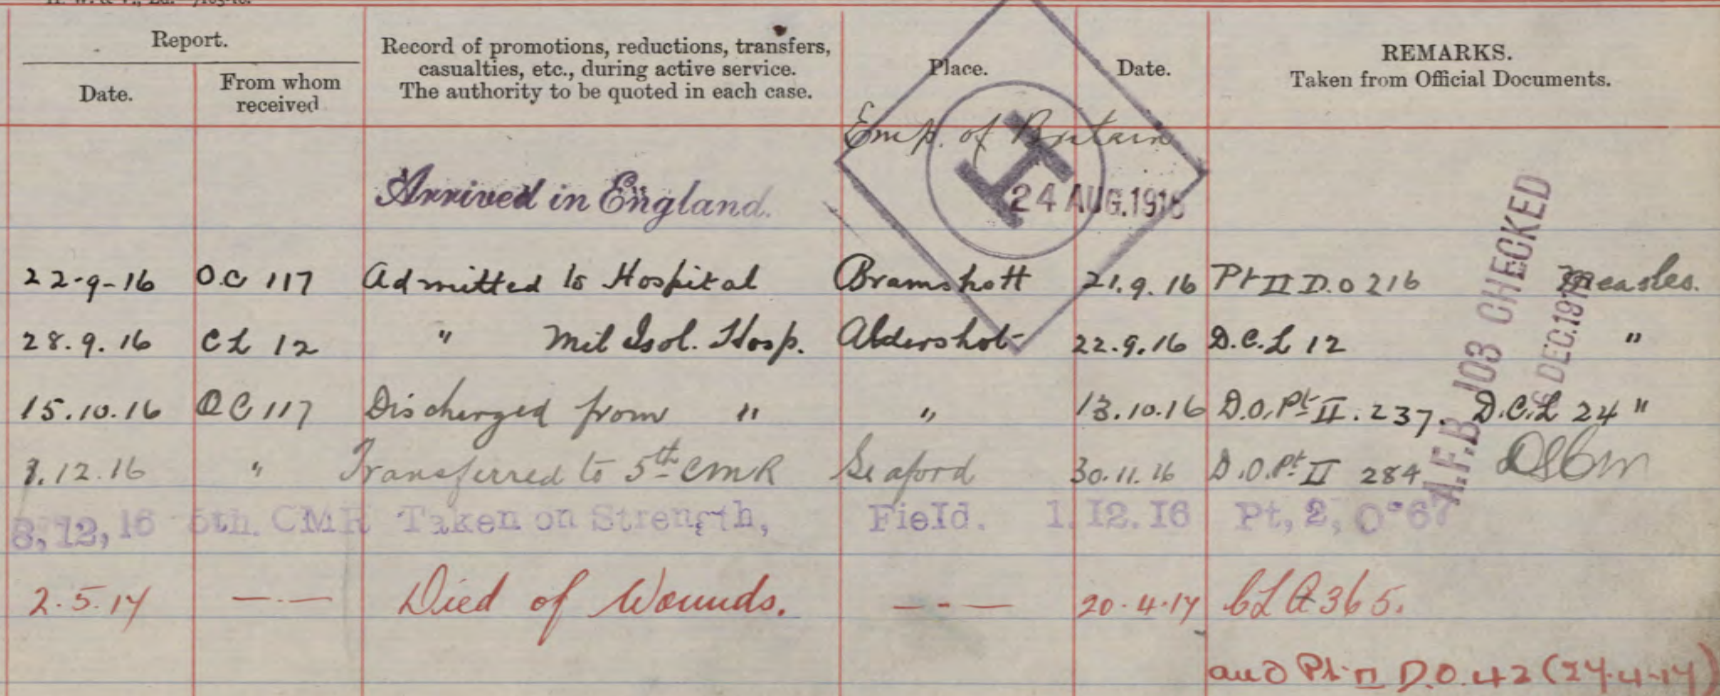 Report.
Date.
From whom
received
Record of promotions, reductions, transfers,
casualties, etc., during active service.
The authority to be quoted in each case.
Place.
Date.
REMARKS.
Taken from Official Documents.
Emp. of Britain
H
Arrived in England.
24 AUG. 1916
22-9-16 O.C 117 Admitted to Hospital Bramshott 21.9.16 Pt II D.O 216 Measles.
28.9.16 CL 12 " Mil Isol. Hosp. Aldershot 22.9.16 D.C.L 12 "
15.10.16 OC 117 Discharged from " " 13.10.16 D.O. Pt II. 237. D.C.L 24 "
1.12.16 " Transferred to 5th CMR Seaford 30.11.16 D.O. Pt II 284
8,12,16 5th. CMR Taken on Strength, Field. 1.12.16 Pt, 2, O 67
A.F.B. 103 CHECKED
DEC. 191
2.5.17 —·— Died of Wounds. — - — 20.4.17 CL A365.
and Pt II D.O. 42 (27.4.17)